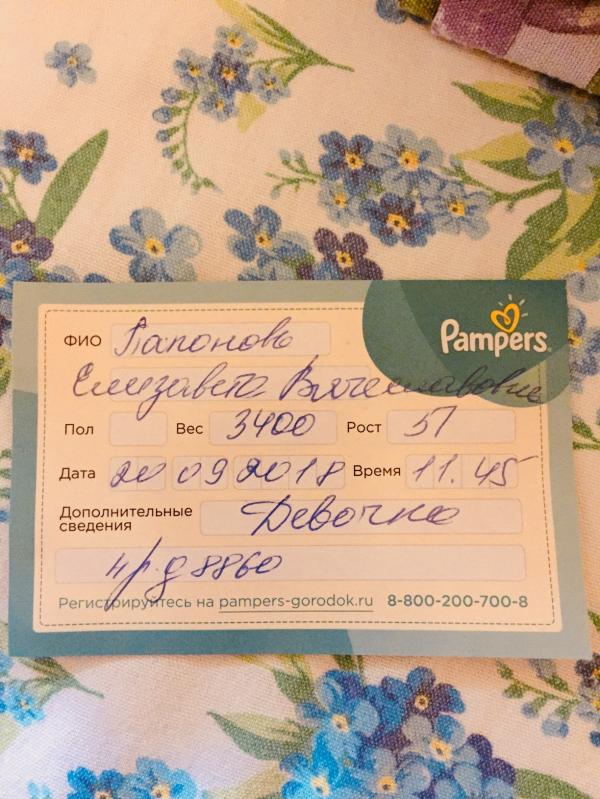 Pampers
ФИО Папонова
Елизавета Вячеславовна
Пол Вес 3400 Рост 51
Дата 20 09 2018 Время 11.45
Дополнительные сведения Девочка
8860
Регистрируйтесь на pampers-gorodok.ru 8-800-200-700-8